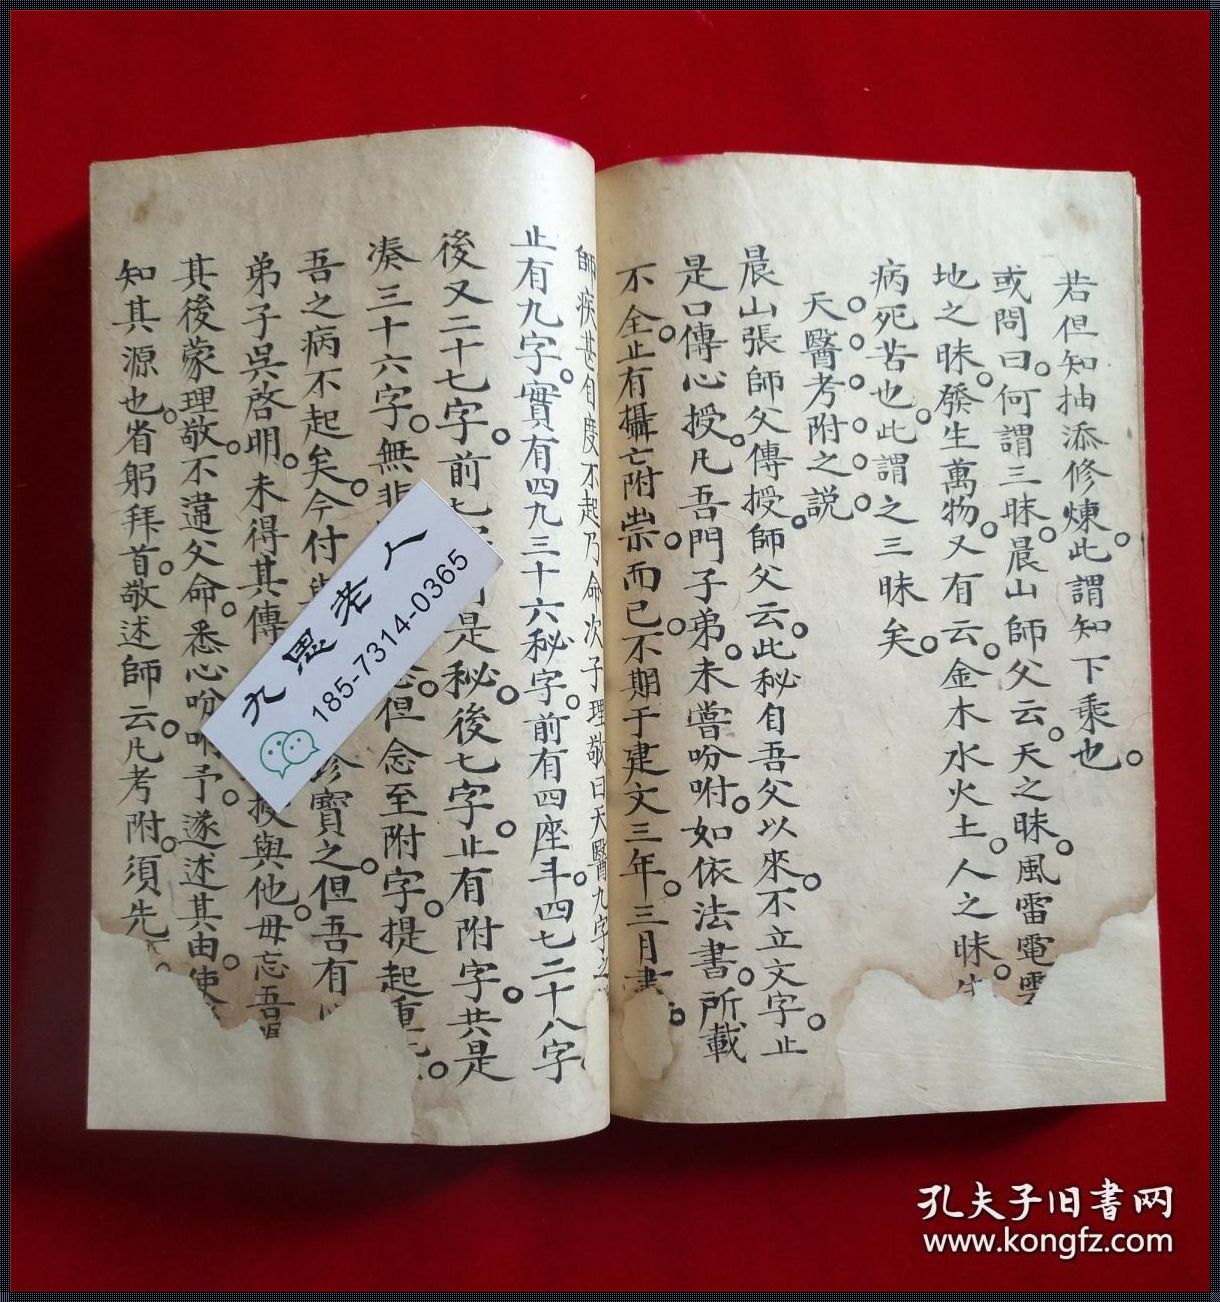 若但知抽添修煉。此謂知下乘也。
或問曰。何謂三昧。晨山師父云。天之昧。風雷電雲
地之昧。發生萬物。又有云。金木水火土。人之昧。生
病死苦也。此謂之三昧矣。
天醫考附之説
晨山張師父傳授。師父云。此秘自吾父以來。不立文字。止
是口傳心授。凡吾門子弟。未嘗吩咐。如依法書。所載
不全。止有攝亡附祟。而已。不期于建文三年。三月
師疾甚自度不起乃命次子理敬曰天醫九字之
止有九字。實有四九三十六秘字。前有四座斗。四七二十八字
後又二十七字。前七 是秘。後七字。止有附字。共是
凑三十六字。無非 但念至附字。提起重
吾之病不起矣。今付與 珍寶之。但吾有
弟子吳啓明。未得其傳 授與他。毋忘吾
其後蒙理敬。不違父命。悉心吩咐予。遂述其由。使
知其源也。省躬拜首。敬述師云。凡考附。須先
九墨老人
185-7314-0365
孔夫子旧書网
www.kongfz.com